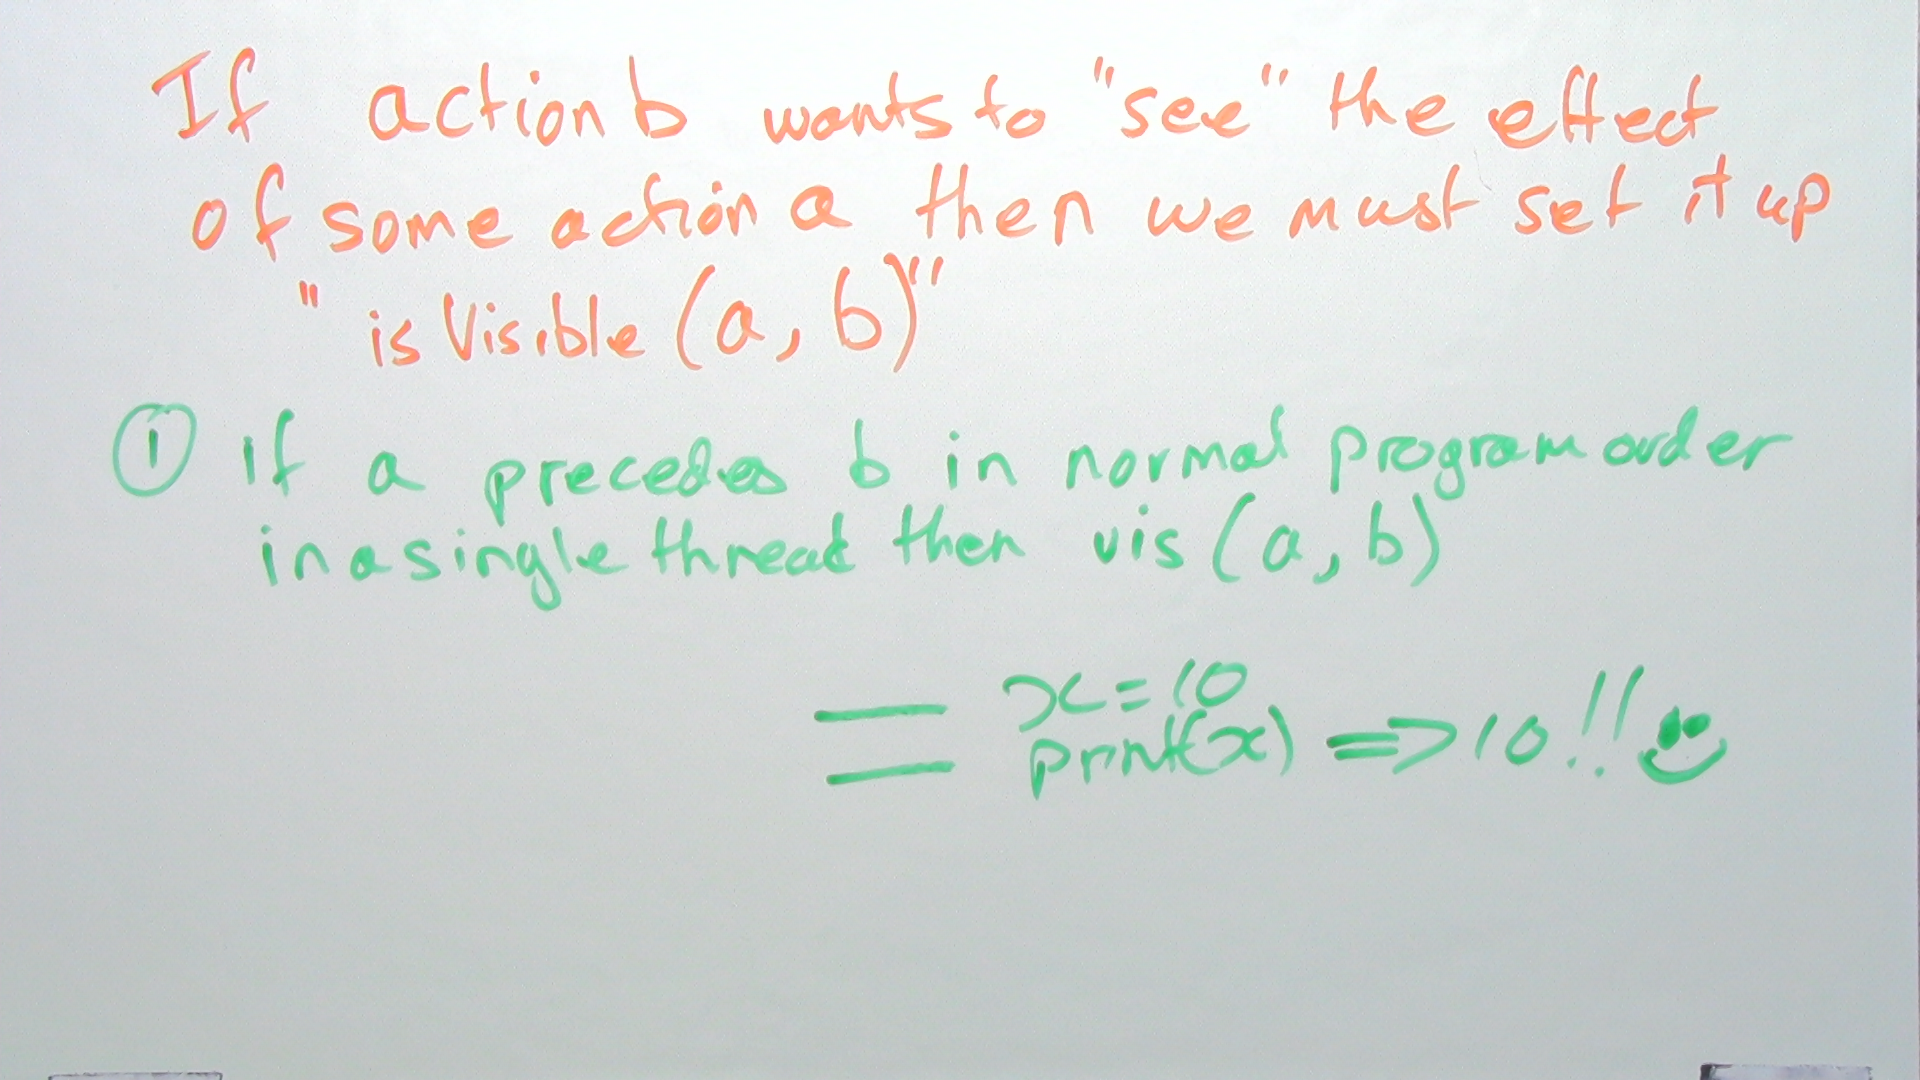 If action b wants to "see" the effect
of some action a then we must set it up
"isVisible (a, b)"
① if a precedes b in normal program order
in a single thread then vis (a, b)
x = 10
print(x) => 10!!